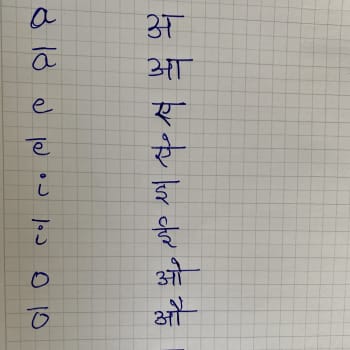 a अ
ā आ
e ए
ē ऐ
i इ
ī ई
o ओ
ō औ